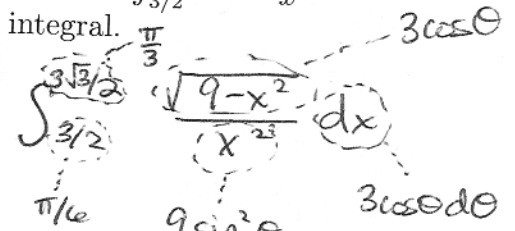 integral. π/3 3cosθ
∫ 3√3/2 3/2 √9-x² / x² dx
π/6 9sin²θ 3cosθdθ